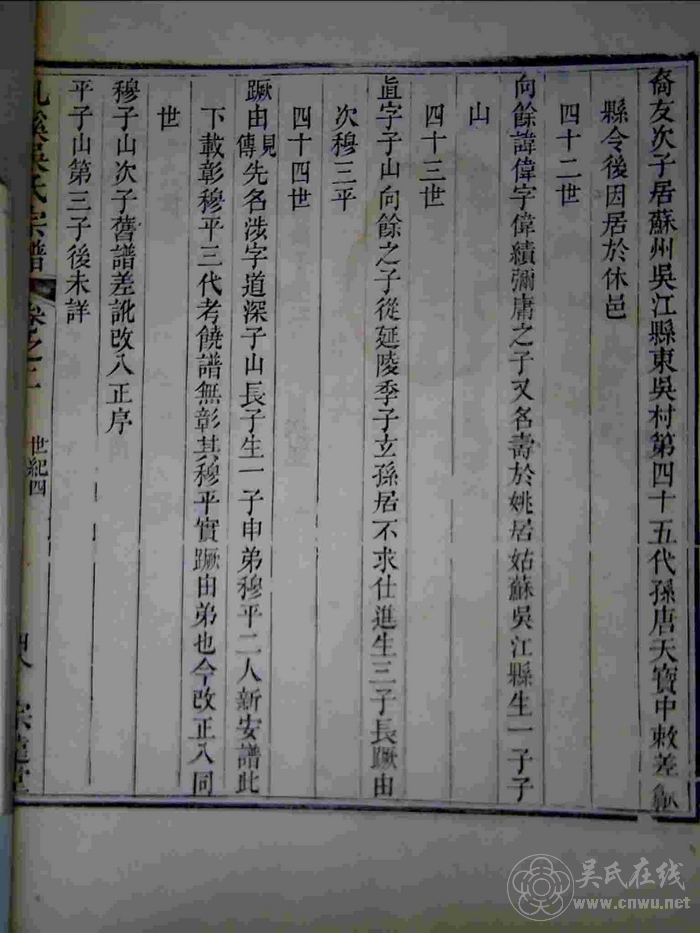 裔友次子居蘇州吳江縣東吳村第四十五代孫唐天寶中敕差歙
縣令後因居於休邑
四十二世
向餘諱偉字偉績彌庸之子又名壽於姚居姑蘇吳江縣生一子子
山
四十三世
眞字子山向餘之子從延陵季子玄孫居不求仕進生三子長蹶由
次穆三平
四十四世
蹶由見傳先名涉字道深子山長子生一子申弟穆平二人新安譜此
下載彰穆平三代考饒譜無彰其穆平實蹶由弟也今改正入同
世
穆子山次子舊譜差訛改入正序
平子山第三子後未詳
溪吳氏宗譜 卷之二 世紀四
吴氏在线
www.cnwu.net